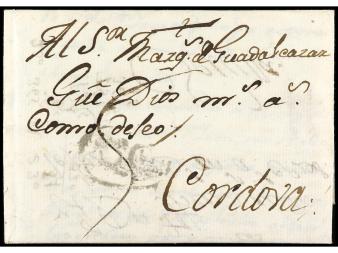 Al S.or Marq.s d Guadalcazar
Gũe Dios m.s a.s
Como deseo.
Cordova.